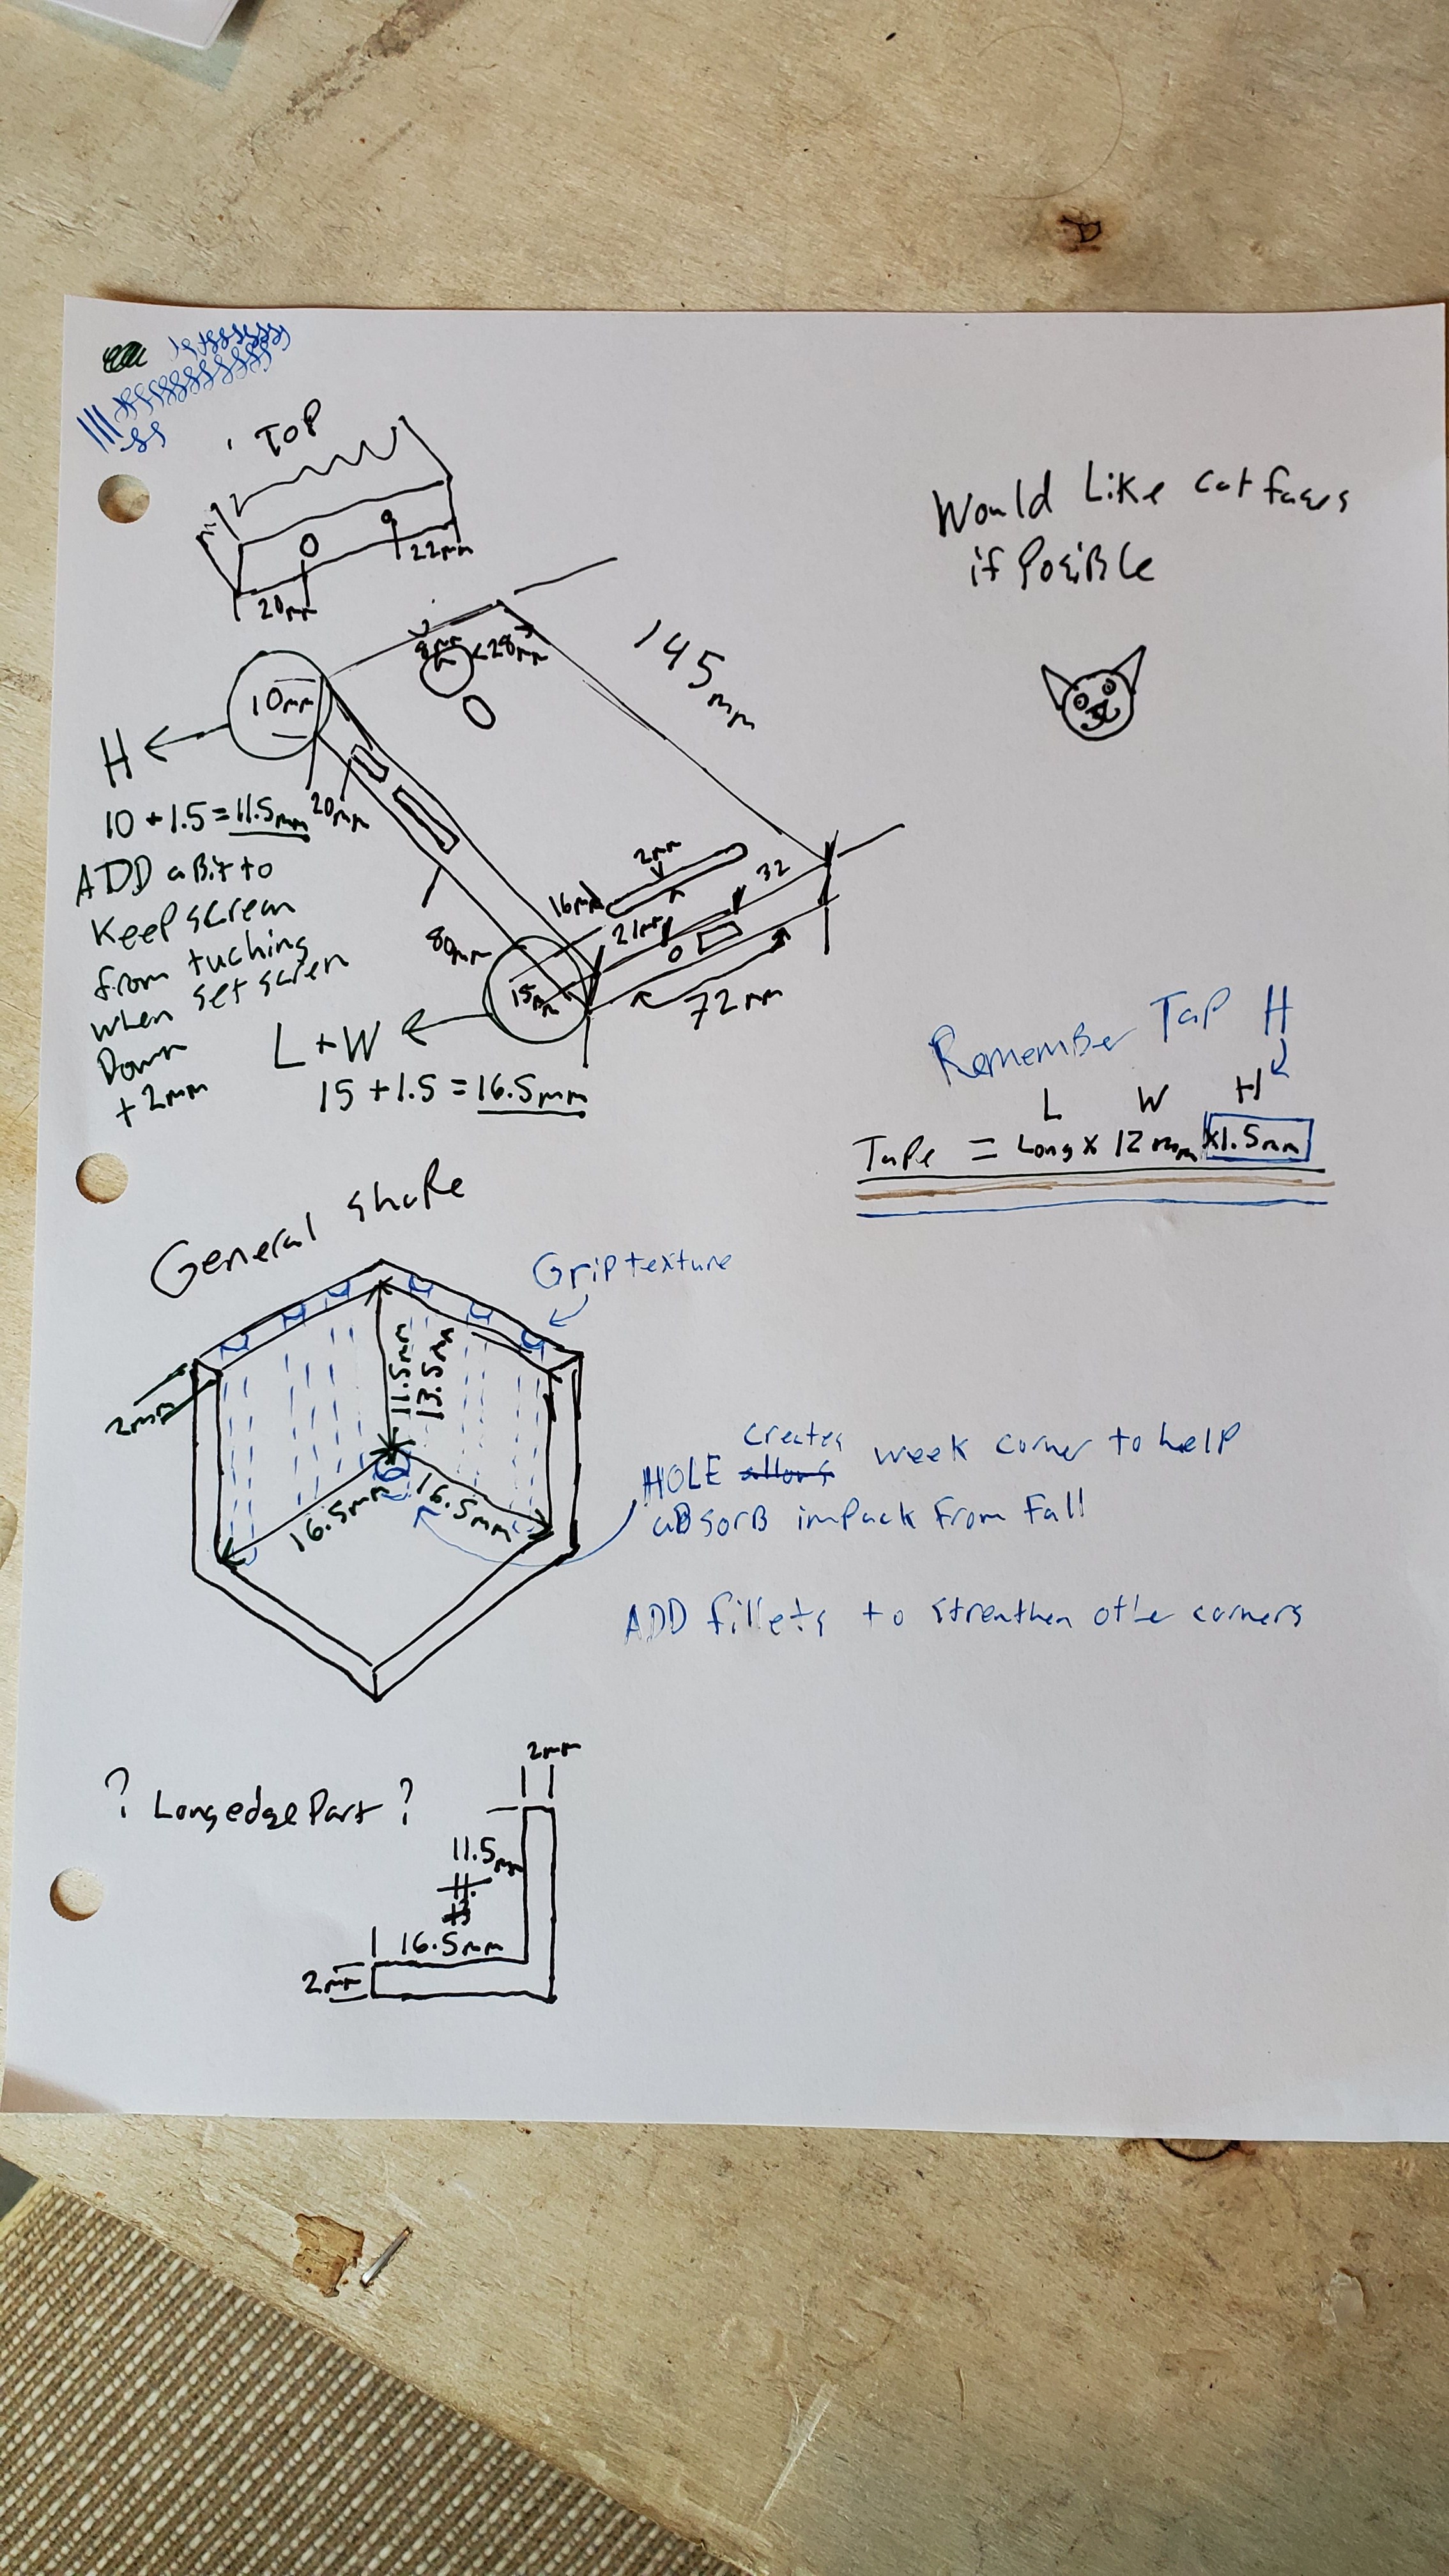 TOP
22mm
20mm
Would Like cat faces
if PosiBle
145mm
8mm
<28mm
10mm
H
10 + 1.5 = 11.5mm
20mm
ADD a Bit to
Keep screen
from tuching
when set scren
Down
+ 2mm
2mm
16mm
32
21mm
80mm
15mm
72mm
L + W
15 + 1.5 = 16.5mm
Remember Tap H
L W H
Tape = Long x 12mm x1.5mm
General shape
Grip texture
2mm
11.5mm
13.5mm
16.5mm
16.5mm
creates
HOLE allows week corner to help
aBsorB impack from Fall
ADD fillets to strenthen othe corners
? Long edge Part ?
2mm
11.5mm
16.5mm
2mm